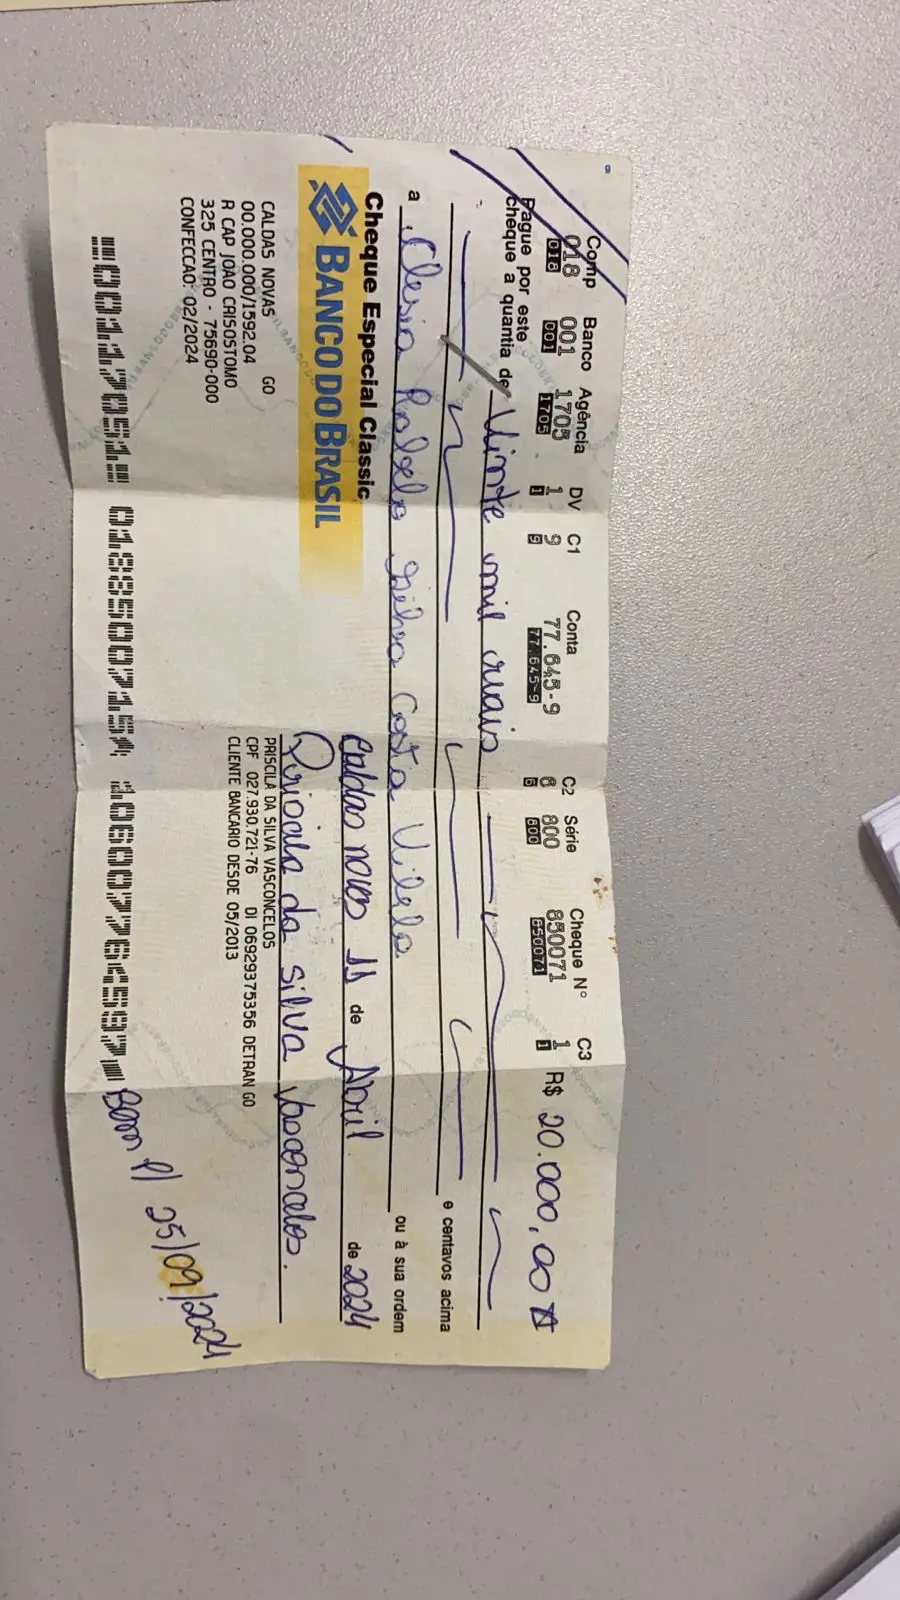 Comp Banco Agência DV C1 Conta C2 Série Cheque N° C3
018 001 1705 1 9 77.645-9 6 800 850071 1 R$ 20.000,00
018 001 1705 1 9 77.645-9 6 800 850071 1
Pague por este
cheque a quantia de Vinte mil reais
e centavos acima
a Clesia Rabelo Silva Costa Vilela ou à sua ordem
Caldas novas 11 de Abril de 2024
Cheque Especial Classic
BANCO DO BRASIL
Priscila da Silva Vasconcelos.
CALDAS NOVAS GO
00.000.000/1592.04
R CAP JOAO CRISOSTOMO
325 CENTRO - 75690-000
CONFECCAO: 02/2024
PRISCILA DA SILVA VASCONCELOS
CPF 027.930.721-76 DI 06929375356 DETRAN GO
CLIENTE BANCARIO DESDE 05/2013
Bom P/ 25/09/2024